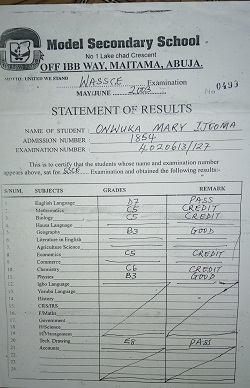 Model Secondary School
No 1 Lake chad Crescent
OFF IBB WAY, MAITAMA, ABUJA.
MOTTO: UNITED WE STAND
WASSCE Examination
MAY/JUNE 2003 No 0493
STATEMENT OF RESULTS
NAME OF STUDENT : ONWUKA MARY IJEOMA
ADMISSION NUMBER : 1854
EXAMINATION NUMBER : 4020613/127
This is to certify that the students whose name and examination number
appears above, sat for SSCE Examination and obtained the following results:-
S/NUM. SUBJECTS GRADES REMARK
1. English Language D7 PASS
2. Mathematics C5 CREDIT
3. Biology C5 CREDIT
4. Hausa Language
5. Geography B3 GOOD
6. Literature in English
7. Agriculture Science
8. Economics C5 CREDIT
9. Commerce
10. Chemistry C6 CREDIT
11. Physics B3 GOOD
12. Igbo Language
13. Yoruba Language
14. History
15. CRS/IRS
16. F/Maths
17. Government
18. H/Science
19. H/Management
20. Tech. Drawing E8 PASS
21. Accounts